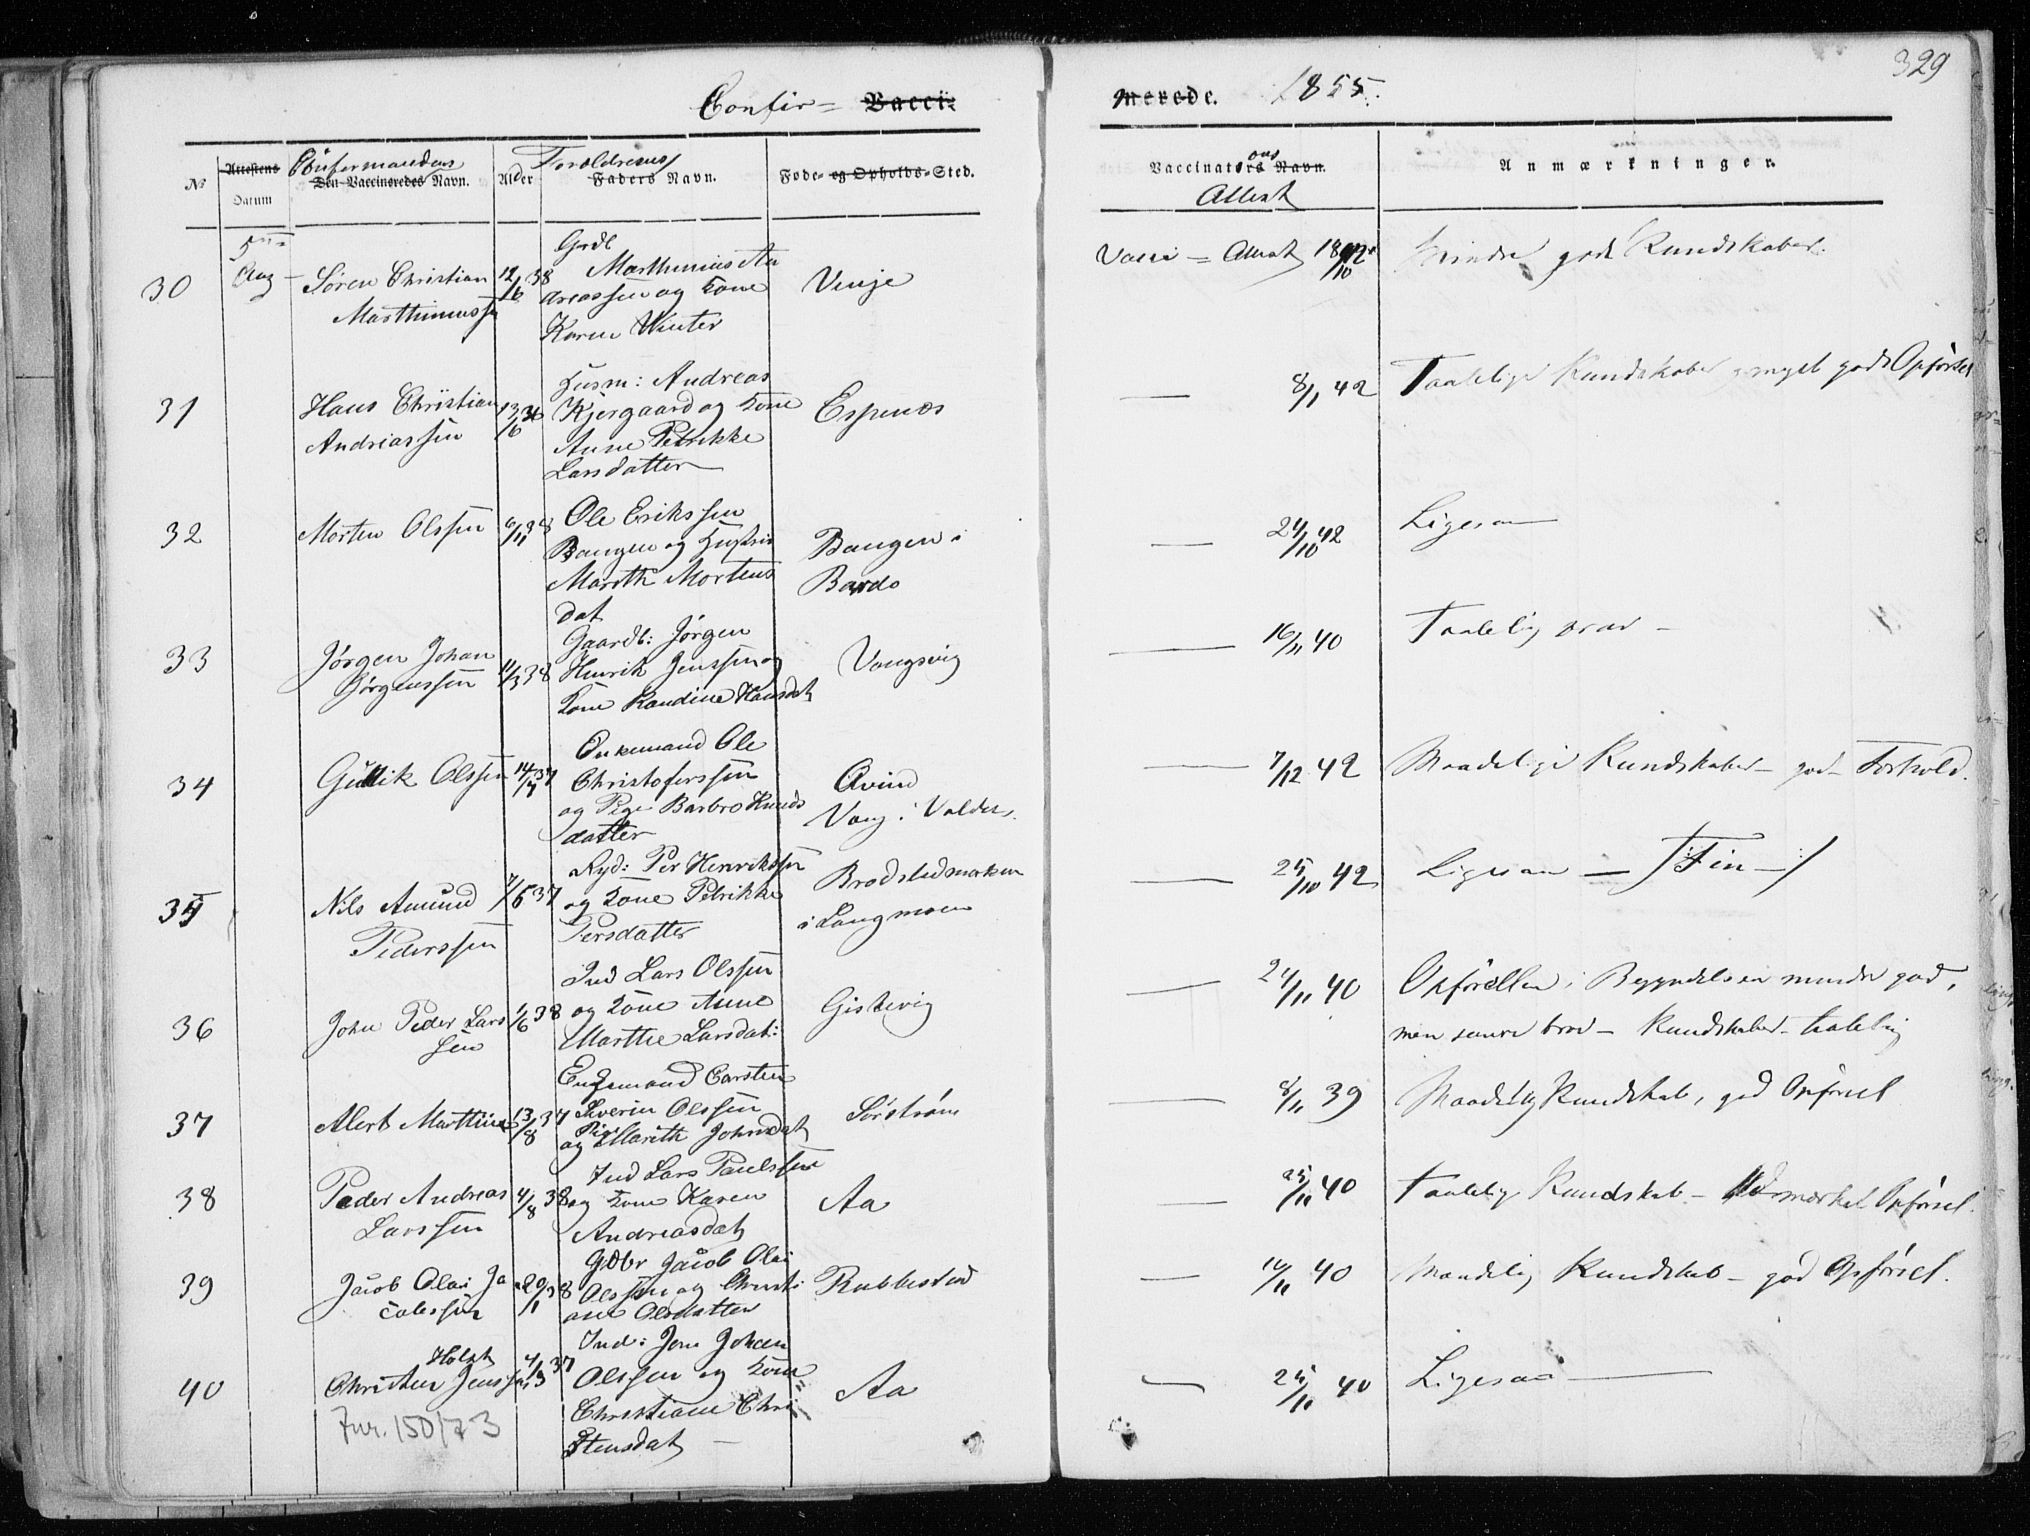 329
Confir = Vacci=
merede. 1855.
No Attestens Datum
Confirmandens
Den Vaccineredes Navn.
Alder
Forældrenes
Faders Navn.
Føde- og Opholds-Sted.
Vaccinations
Vaccinators Navn.
Attest
Anmærkninger.
5te Aug
30 Søren Christian Marthinussen 12/6 38
Grdb Marthinius An
dreassen og Kone
Karen Winter
Vinje
Vacci = Attest 18/10 42
Mindre gode Kundskaber.
31 Hans Christian
Andreassen
13/6 38
Husm: Andreas
Kjergaard og Kone
Anne Petrikke
Larsdatter
Espenes
8/1 42
Taalelige Kundskaber, meget god Opførsel
32 Morten Olssen 6/11 38
Ole Erikssen
Bangen og Hustru
Marith Mortens
dat
Bangen i
Bardo
24/10 42
Ligesaa
33 Jørgen Johan
Jørgenssen
11/3 38
Gaardb: Jørgen
Henrik Jenssen og
Kone Randine Hansdat
Vangsvig
16/11 40
Taalelig brav
34 Gullik Olssen 14/7 37
Enkemand Ole
Christoferssen
og Pige Barbro Knuds
datter
Øvind
Vang i Valders.
7/12 42
Maadelige Kundskaber - god Forhold.
35 Nils Amund
Pederssen
7/5 37
Ryd: Per Henrikssen
og Kone Petrikke
Persdatter
Brodstedmarken
i Langmoen
25/10 42
Ligesaa — /: Fin :/
36 John Peder Lars
sen
1/6 38
Ind Lars Olssen
og Kone Anne
Marthe Larsdat:
Giskevig
24/11 40
Opførsellen i Begyndelsen mindre god,
men senere brav - Kundskaber taalelig
37 Alert Martties 13/8 37
Ungemand Carsten
Severin Olssen
og Pige Marith Johnsdat
Sørstrøm
8/11 39
Maadelig Kundskab, god Opførsel
38 Peder Andreas
Larssen
4/8 38
Ind Lars Paulssen
og Kone Karen
Andreasdat
Aa
25/11 40
Taalelig Kundskab - Udmærket Opførsel.
39 Jacob Olai Ja
cobssen
29/1 38
Gdbr Jacob Olai
Olssen og Christi
ane Olsdatter
Rubbestad
10/11 40
Maadelig Kundskab - god Opførsel.
40 Christen Holst Jenssen 4/3 37
Ind: Jens Johan
Olssen og Kone
Christiane Chri
stensdat
Aa
25/10 40
Ligesaa
Fur. 150/73